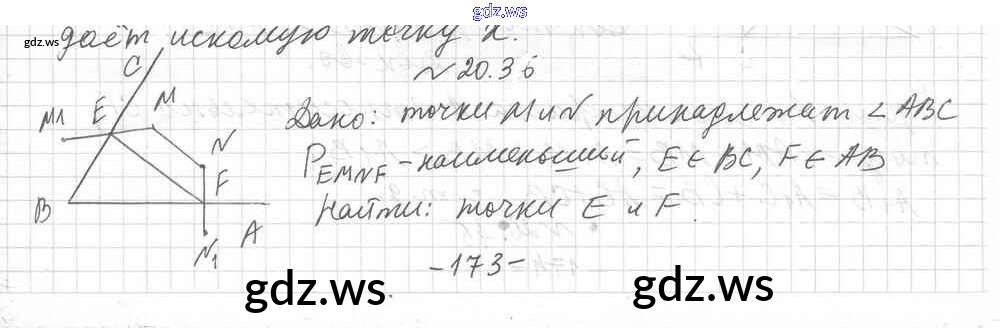 gdz.ws
gdz.ws
даёт искомую точку X.
№ 20.36
Дано: точки M и N принадлежат ∠ ABC
P EMNF - наименьший, E ∈ BC, F ∈ AB
Найти: точки E и F.
C
M1 E M
N
F
B
A
N1
-173-
gdz.ws gdz.ws